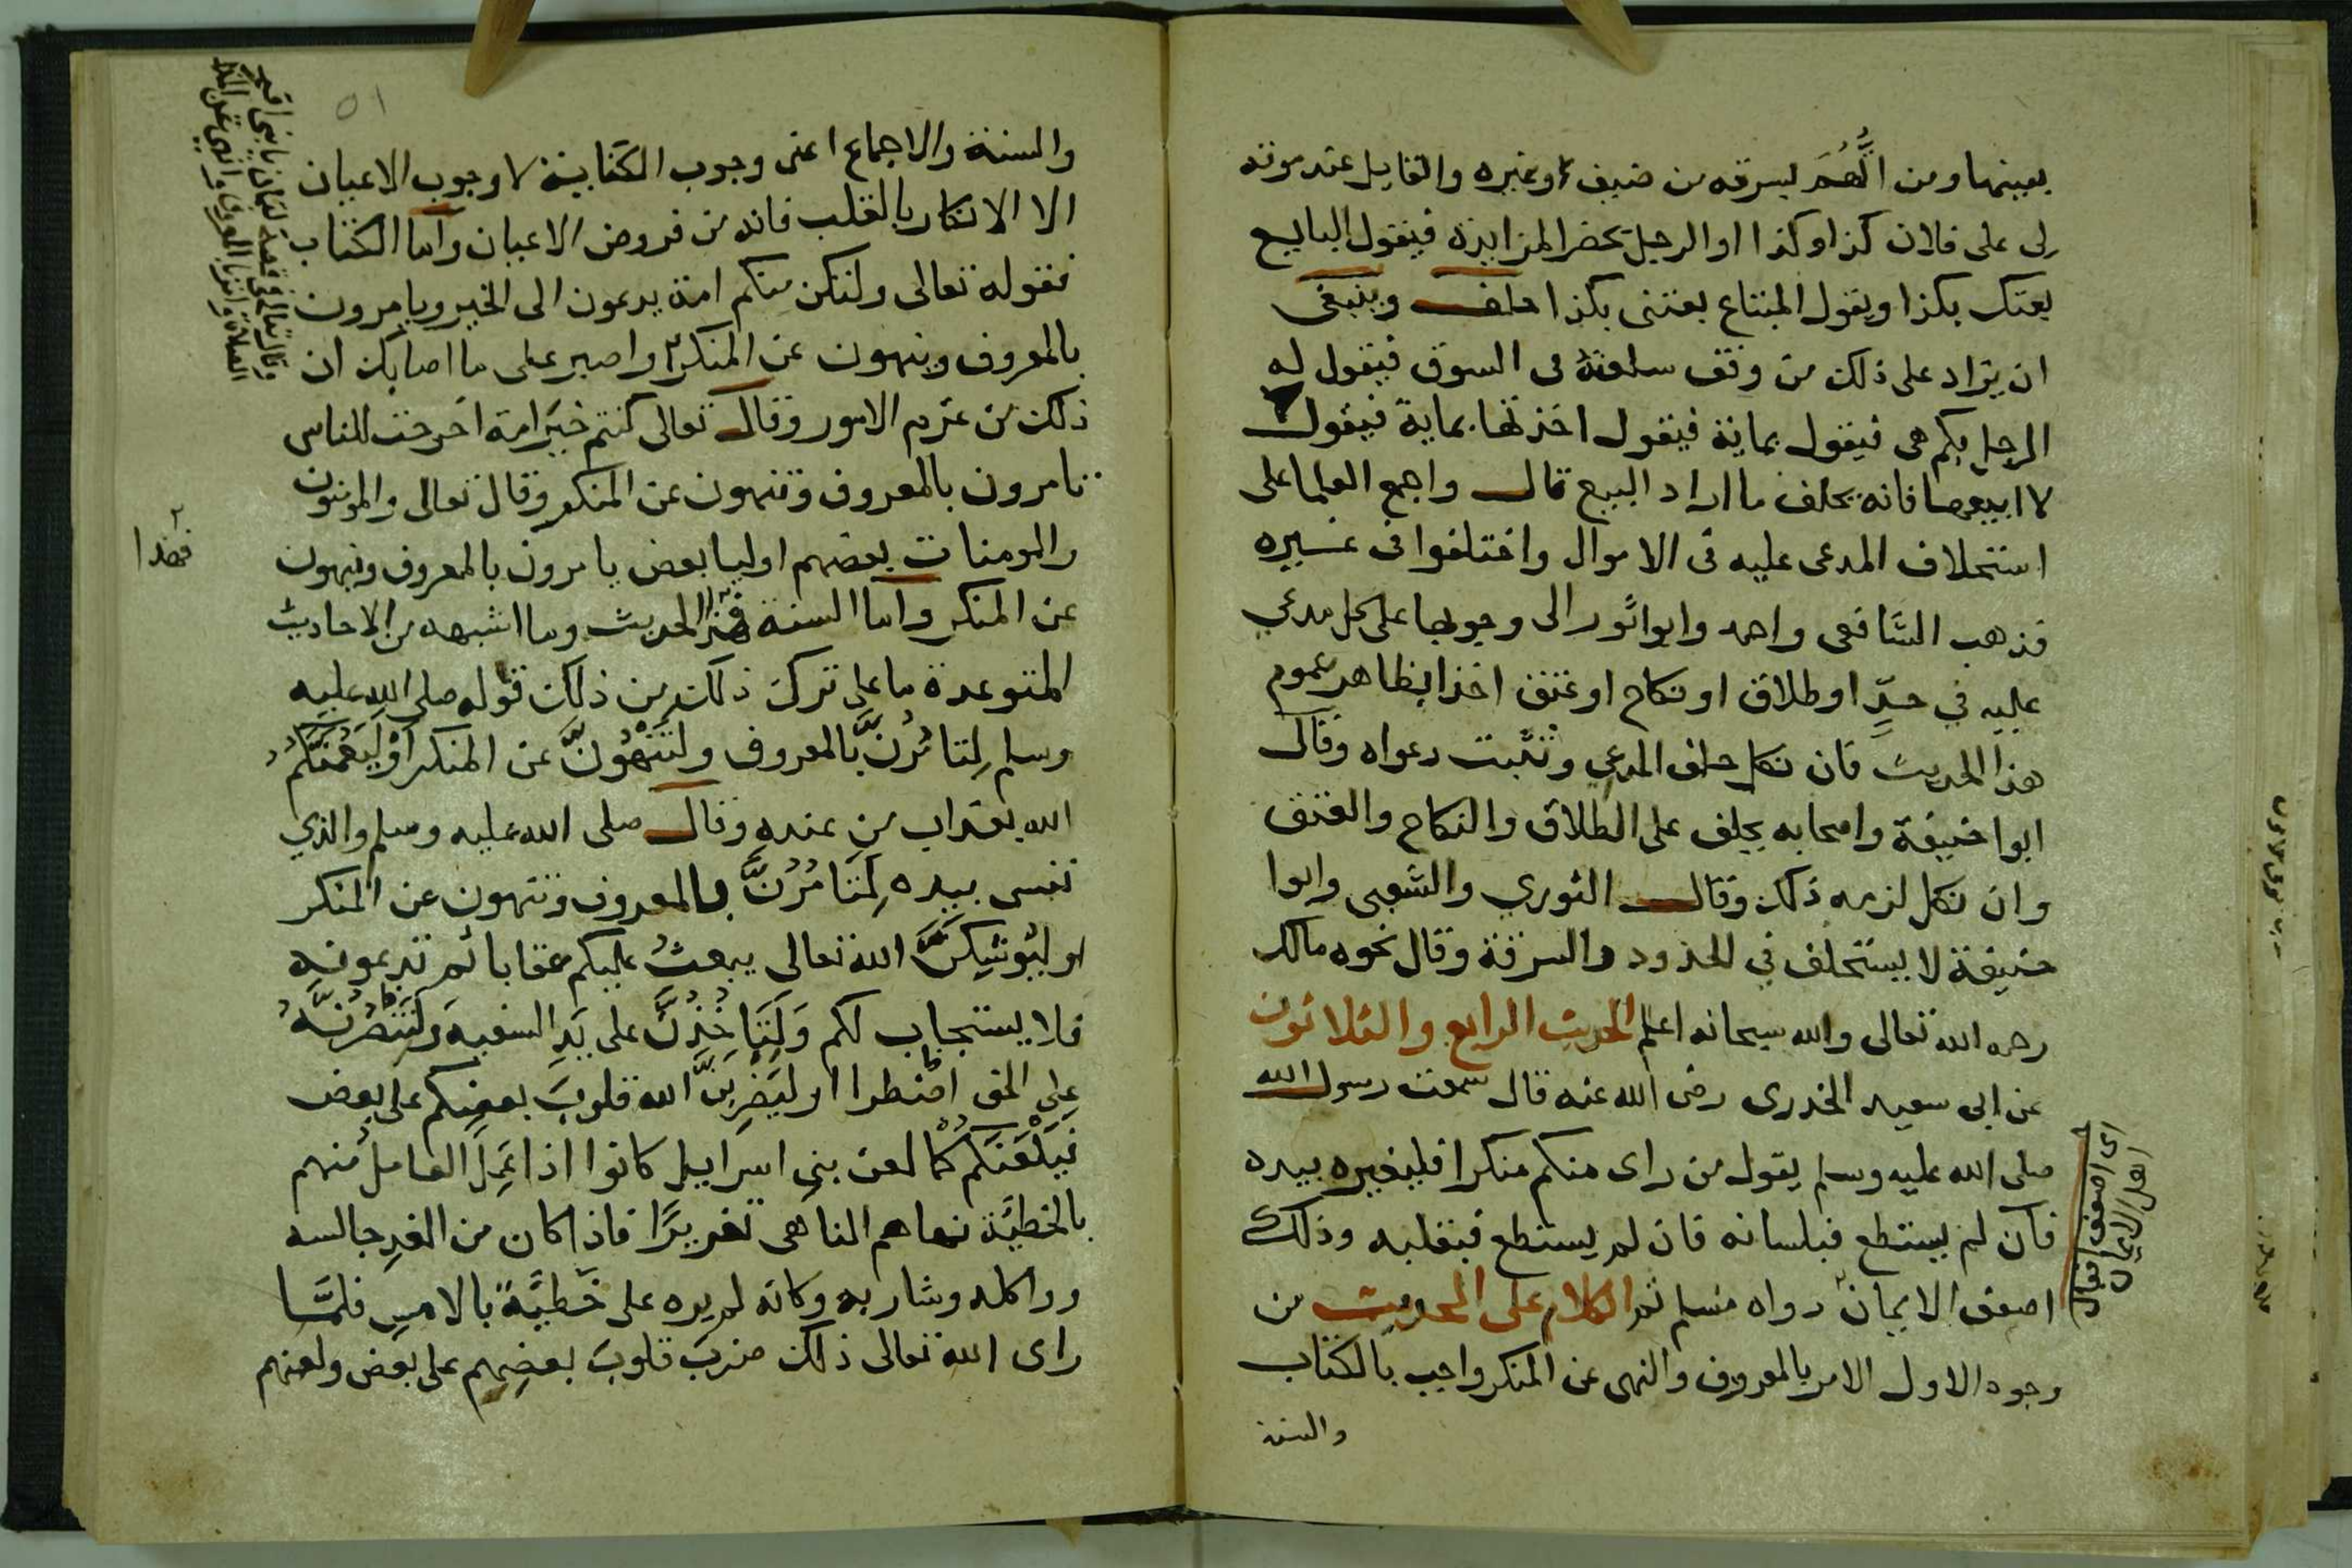 بعينها ومن اتُّهِمَ بسرقه من ضيف او غيره والقايل عند موته
لى على فلان كذا وكذا او الرجل يحضر المزايدة فيقول البايع
بعتك بكذا ويقول المبتاع بعتنى بكذا حلف وينبغى
ان يزاد على ذلك من وقف سلعته فى السوق فيقول له
الرجل بكم هى فيقول بماية فيقول اخذتها بماية فيقول
لا ابيعها فانه يحلف ما اراد البيع قال واجمع العلما على
استحلاف المدعى عليه فى الاموال واختلفوا فى غيره
فذهب الشافعى واحمد وابوا ثور الى وجوبها على كل مدعي
عليه في حدٍّ او طلاق او نكاح او عتق اخذا بظاهر عموم
هذا الحديث فان نكل حلف المدعي وثبتت دعواه وقال
ابوا حنيفة واصحابه يحلف على الطلاق والنكاح والعتق
وان نكل لزمه ذلك وقال الثوري والشعبى وابوا
حنيفة لا يستحلف في الحدود والسرقة وقال نحوه مالك
رحمه الله تعالى والله سبحانه اعلم الحديث الرابع والثلاثون
عن ابى سعيد الخدرى رضى الله عنه قال سمعت رسول الله
صلى الله عليه وسلم يقول من راى منكم منكرا فليغيره بيده
فان لم يستطع فبلسانه فان لم يستطع فبقلبه وذلك
اضعف الايمان رواه مسلم ثم الكلام على الحديث من
وجوه الاول الامر بالمعروف والنهى عن المنكر واجب بالكتاب
والسنة
اى اضعف افعال
اهل الايمان
٥١
والسنة والاجماع اعنى وجوب الكفاية لا وجوب الاعيان
الا الانكار بالقلب فانه من فروض الاعيان واما الكتاب
فقوله تعالى ولتكن منكم امة يدعون الى الخير ويامرون
بالمعروف وينهون عن المنكر واصبر على ما اصابك ان
ذلك من عزم الامور وقال تعالى كنتم خير امة اخرجت للناس
تامرون بالمعروف وتنهون عن المنكر وقال تعالى والمومنون
والمومنات بعضهم اوليا بعض يامرون بالمعروف وينهون
عن المنكر واما السنة فهذا الحديث وما اشبهه من الاحاديث
المتوعدة ما على ترك ذلك من ذلك قوله صلى الله عليه
وسلم لتامُرُنَّ بالمعروف ولتَنْهَوُنَّ عن المنكر أو ليَعُمَّنَّكُمُ
الله بعذاب من عنده وقال صلى الله عليه وسلم والذي
نفسى بيده لَتَامُرُنَّ بالمعروف وتنهون عن المنكر
او ليُوشِكَنَّ الله تعالى يبعثُ عليكم عقابا ثم تدعونه
فلا يستجاب لكم وَلَتَاخُذُنَّ على يَدِ السفيه وَلَتَنْصُرُنَّهُ
على الحق اطرا او ليَضرِبَنَّ الله قلوبَ بعضِكم على بعض
فيَلْعَنَكُم كما لعن بنى اسراييل كانوا اذا عَمِلَ العامل منهم
بالخطيَّة نهاهم الناهى تعزيرًا فاذا كان من الغدِ جالسه
وراكله وشاربه وكانه لم يره على خَطيَّةً بالامسِ فلمَّا
راى الله تعالى ذلك ضربَ قلوبَ بعضِهم على بعض ولعنهم
وقال تعالى فى قصة لقمان يا بنى اقم
الصلاة وامر بالمعروف وانه عن المنكر
فهذا